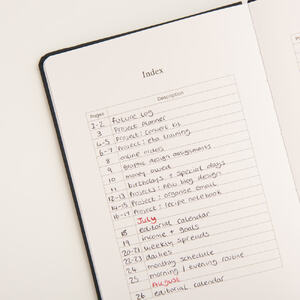 Index
Pages Description
1-2 future log
3 Project Planner
4-5 Project: convert kit
6-7 Project: eta training
8 online orders
9 graphic design assignments
10 money owed
11 birthdays + special days
12-13 Projects: new blog design
14-15 Project: organise email
16-17 Project: recipe notebook
July
18 editorial calendar
19 income + goals
20-21 weekly spreads
22-23 dailies
24 monthly schedule
25 morning / evening routine
August
26 editorial calendar